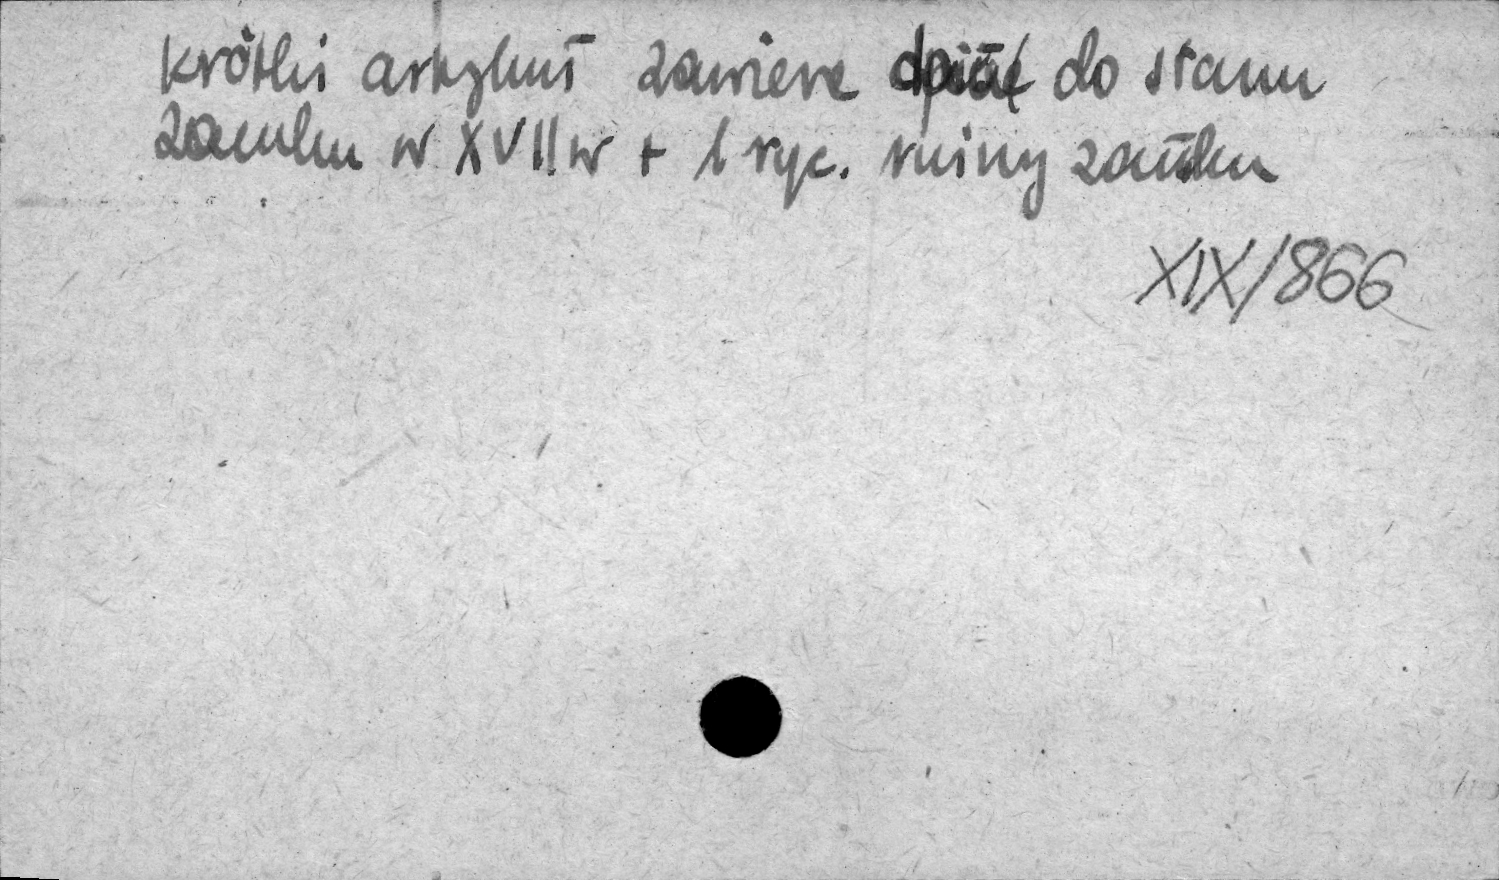 krótki artykuł zawiera do stanu
zamku w XVII w + 1 ryc. ruiny zamku
XIX/866